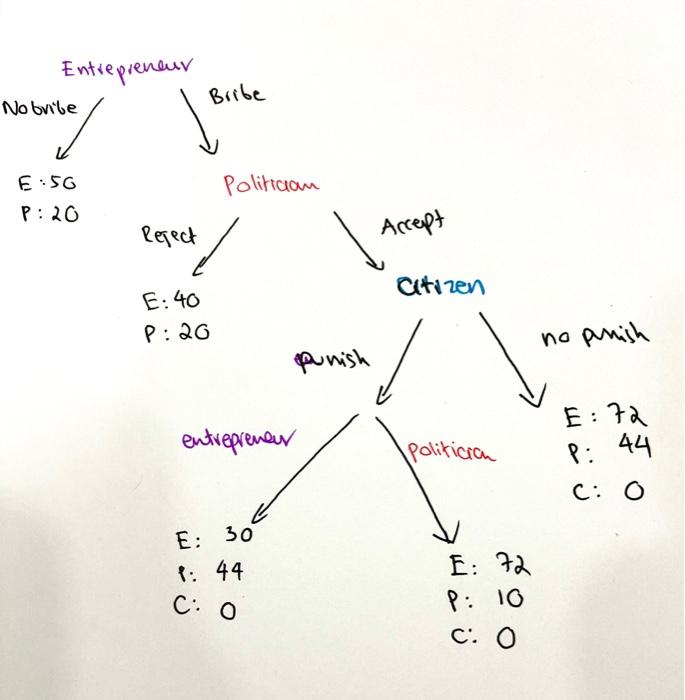 Entrepreneur
No bribe
Bribe
E: 50
P: 20
Politician
Reject
Accept
E: 40
P: 20
Citizen
punish
no punish
entrepreneur
Politician
E: 72
P: 44
C: 0
E: 30
P: 44
C: 0
E: 72
P: 10
C: 0